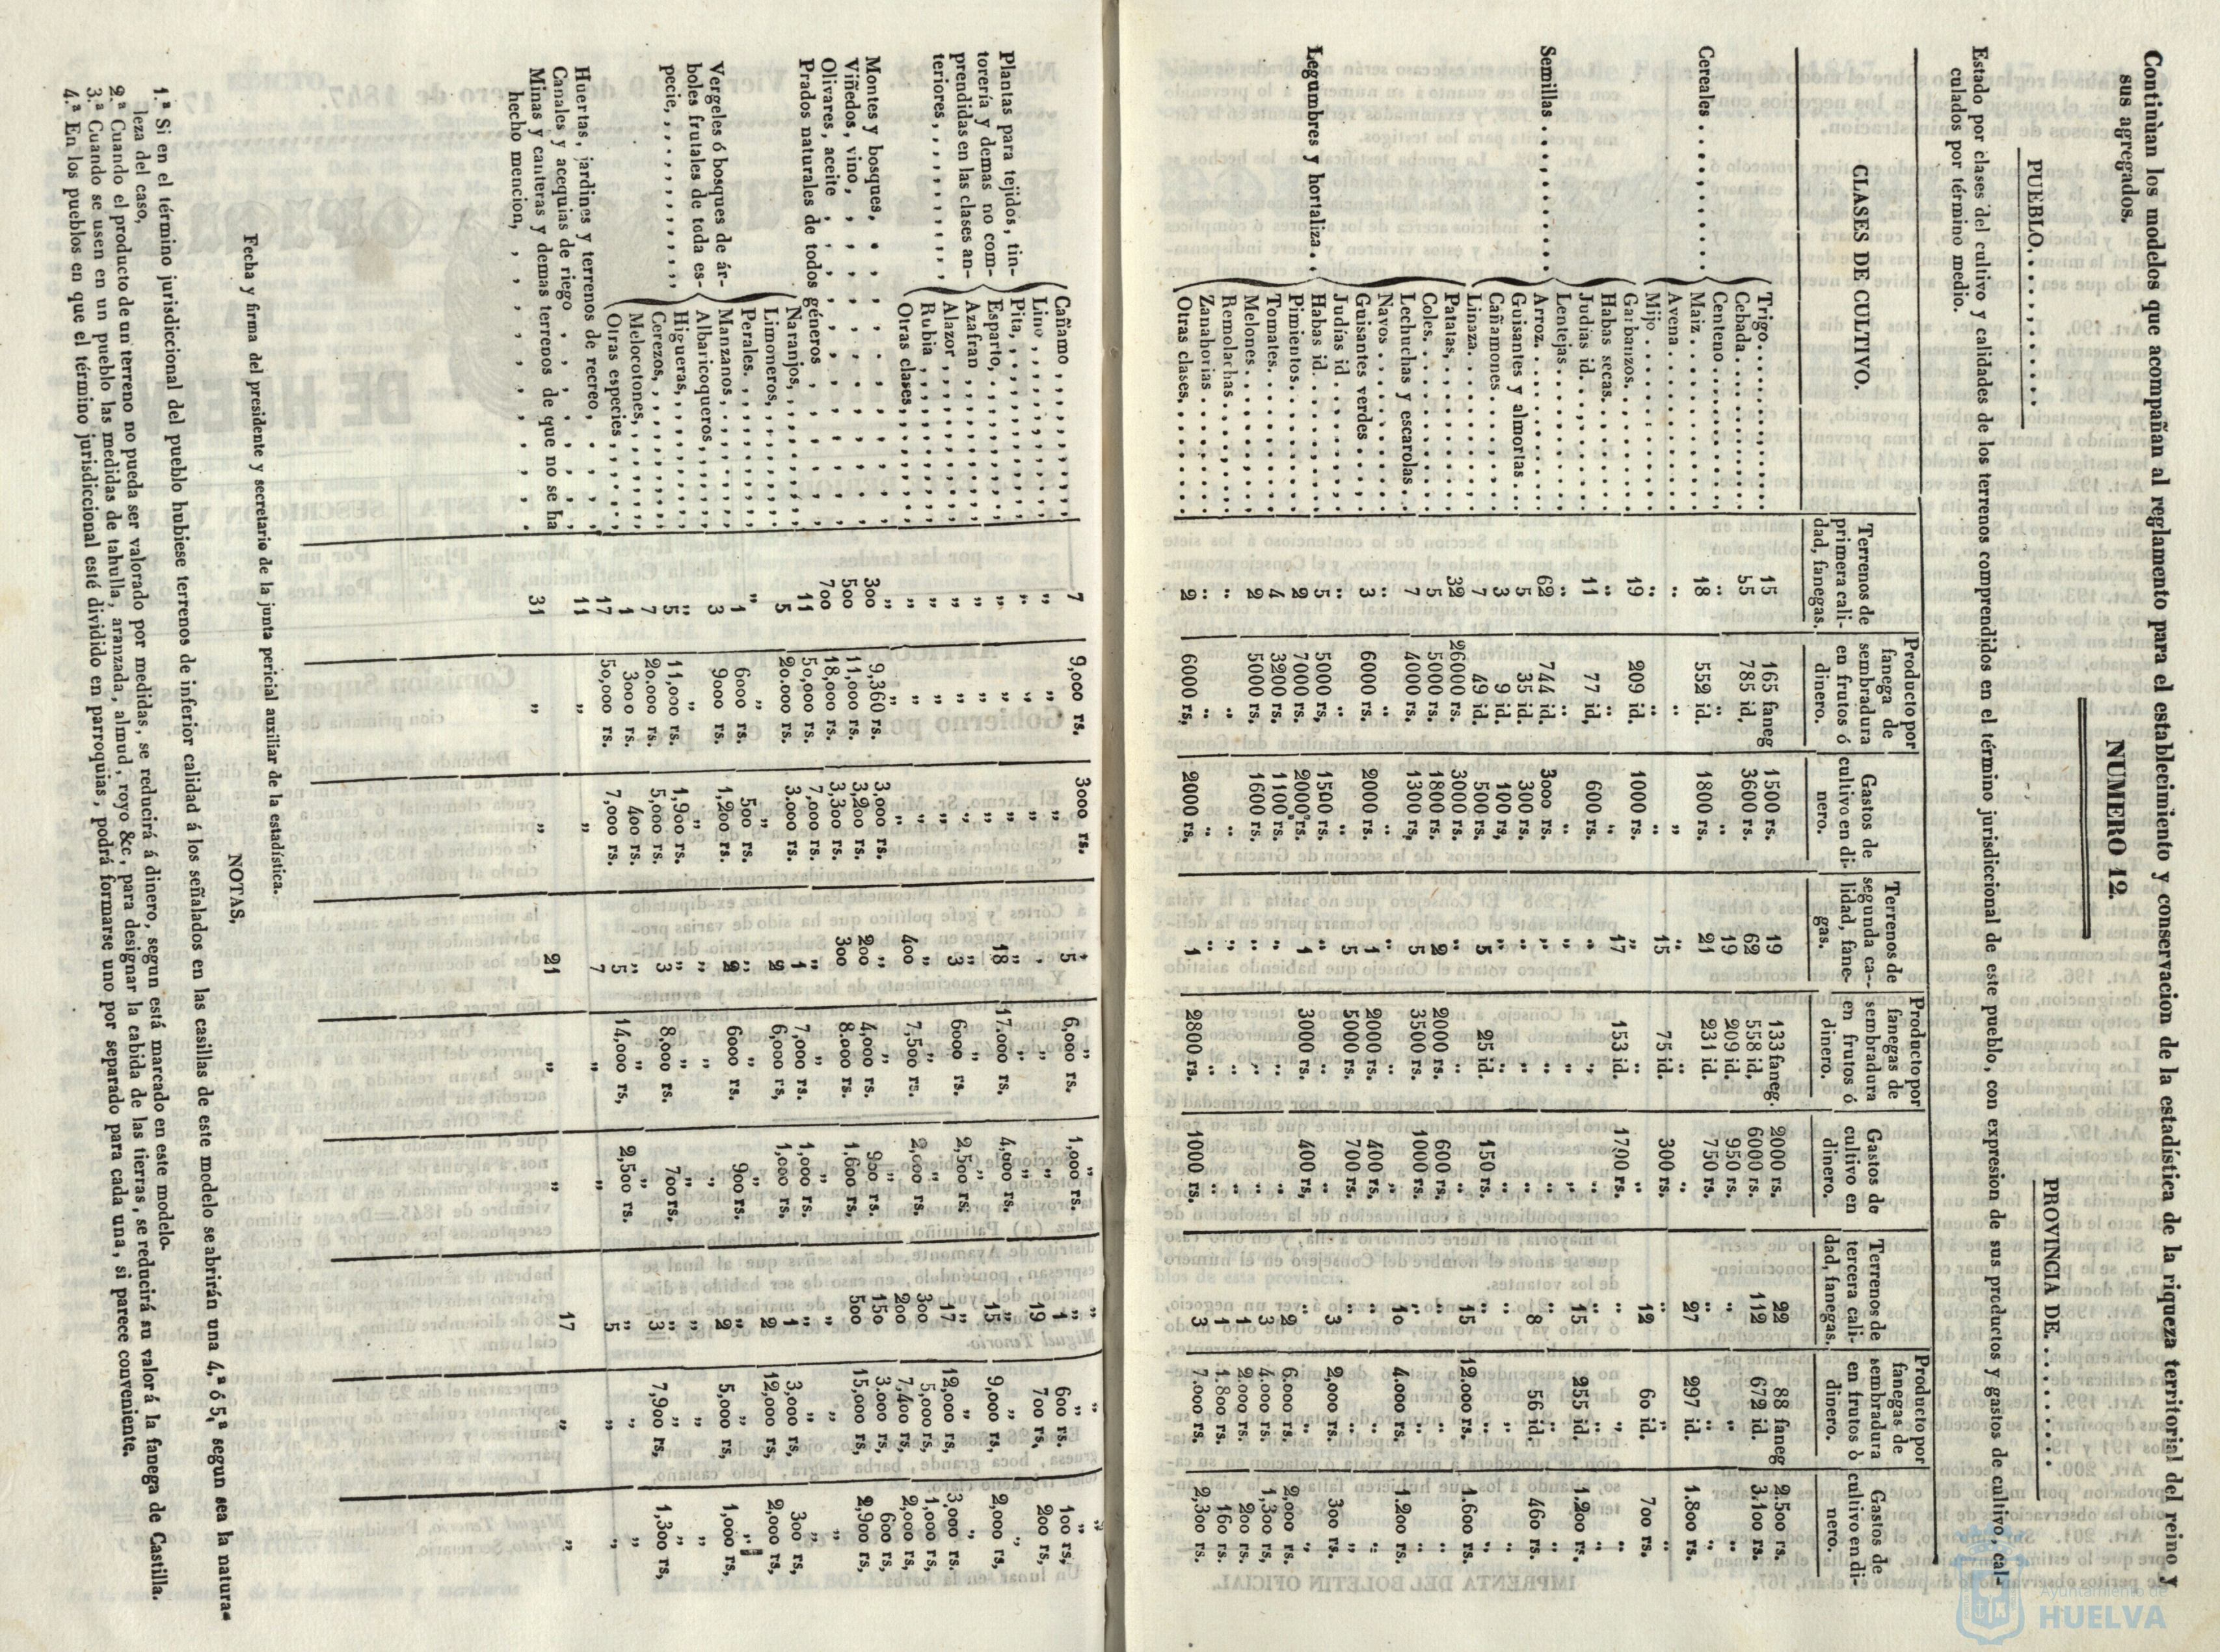 Continùan los modelos que acompañan al reglamento para el establecimiento y conservacion de la estadística de la riqueza territorial del reino y
sus agregados.
NUMERO 12.
PUEBLO. . . . . . . . . . PROVINCIA DE. . . . . . . . .
Estado por clases del cultivo y calidades de los terrenos comprendidos en el término jurisdiccional de este pueblo, con expresion de sus productos y gastos de cultivo, cal-
culados por término medio.
CLASES DE CULTIVO. Terrenos de primera cali- dad, fanegas. Producto por fanega de sembradura en frutos ó dinero. Gastos de cultivo en di- nero. Terrenos de segunda ca- lidad, fane- gas. Producto por fanegas de sembradura en frutos ó dinero. Gastos de cultivo en dinero. Terrenos de tercera cali- dad, fanegas. Producto por fanegas de sembradura en frutos ò dinero. Gastos de cultivo en di- nero.
Cereales . . . . . . . . . .
Trigo. . . . 15 165 faneg 1500 rs. 19 133 faneg. 2000 rs. 22 88 faneg 2.500 rs.
Cebada. . . . 55 785 id, 3600 rs. 62 558 id, 6000 rs. 112 672 id. 3.100 rs.
Centeno. . . . „ „ „ 19 209 id. 950 rs. „ „ „
Maiz. . . . 18 552 id. 1800 rs. 21 231 id. 750 rs. 27 297 id. 1.800 rs.
Avena. . . . „ „ „ „ „ „ „ „ „
Mijo. . . . „ „ „ 15 75 id. 300 rs. „ „ „
Semillas . . . . . . . . . .
Garbanzos. . . . 19 209 id. 1000 rs. „ „ „ 12 60 id. 700 rs.
Habas secas. . . . „ „ „ 17 153 id. 1700 rs. „ „ „
Judias id. . . . 11 77 id, 600 rs. „ „ „ „ „ „
Lentejas. . . . „ „ „ „ „ „ 15 255 id. 1.200 rs.
Arroz. . . . 62 744 id. 3000 rs. „ „ „ „ „ „
Guisantes y almortas . . . 5 35 id. 300 rs. „ „ „ 8 56 id. 460 rs.
Cañamones . . . 3 9 id. 100 rs, „ „ „ „ „ „
Linaza. . . . 7 49 id. 500 rs. 5 25 id. 150 rs. „ „ „
Legumbres y hortaliza. .
Patatas. . . . 32 26000 rs. 3000 rs. „ „ „ 15 12.000 rs. 1.600 rs.
Coles. . . . 5 5000 rs. 1800 rs. 2 2000 rs. 600 rs. „ „ „
Lechuchas y escarolas. . 7 4000 rs, 1300 rs, 5 3500 rs. 1000 rs. „ „ „
Navos . . . . „ „ „ „ „ „ 10 4.000 rs. 1.200 rs.
Guisantes verdes . . . 3 6000 rs. 2000 rs. 1 2000 rs. 400 rs. „ „ „
Judias id. . . . „ „ „ 5 5000 rs. 700 rs. „ „ „
Habas id. . . . 5 5000 rs, 1500 rs. „ „ „ 3 2,000 rs. 300 rs.
Pimientos. . . . 2 7000 rs, 2000 rs. 1 3000 rs. 400 rs, „ „ „
Tomates. . . . 4 3200 rs, 1100 rs. „ „ „ 2 6.000 rs. 2,000 rs.
Melones . . . 2 5000 rs, 1600 rs. „ „ „ 3 4.000 rs. 1,300 rs.
Remolachas. . . . „ „ „ „ „ „ 2 2.000 rs. 200 rs.
Zanahorias . . . „ „ „ „ „ „ 1 1.800 rs. 160 rs.
Otras clases. . . . 2 6000 rs, 2000 rs. 1 2800 rs. 1000 rs. 3 7.000 rs. 2,300 rs.
Plantas para tejidos, tin-
torería y demas no com-
prendidas en las clases an-
teriores, , , , , , , , ,
Cañamo , , , , 7 9,000 rs, 3000 rs. 5 6,000 rs. 1,000 rs. „ „ „
Lino , , , , „ „ „ „ „ „ 1 600 rs. 100 rs,
Pita, , , , , „ „ „ „ „ „ 19 700 rs, 200 rs,
Esparto, , , , „ „ „ 18 17.000 rs, 4,000 rs, „ „ „
Azafran , , , , „ „ „ „ „ „ 15 9,000 rs, 2,000 rs,
Alazor , , , , „ „ „ 3 6000 rs. 2,500 rs. „ „ „
Rubia , , , , „ „ „ „ „ „ 17 12,000 rs, 3,000 rs.
Otras clases, , , , „ „ „ 400 7,500 rs. 2,000 rs. 300 5,000 rs, 1,000 rs,
Montes y bosques, , , 300 9,360 rs. 3,000 rs. „ „ „ 200 7,400 rs, 2,000 rs,
Viñedos, vino, , , , 500 11,000 rs. 3,200 rs. 200 4,000 rs. 900 rs. 150 3.000 rs, 600 rs,
Olivares, aceite , , , 700 18,000 rs. 3,300 rs. 300 8.000 rs. 1,600 rs, 500 15,000 rs, 2,900 rs.
Prados naturales de todos géneros , , 11 50,000 rs. 7,000 rs. „ „ „ „ „ „
Vergeles ó bosques de ár-
boles frutales de toda es-
pecie, , , , , , , , , ,
Naranjos, , , , 5 20.000 rs. 3.000 rs. 1 7,000 rs. 1,000 rs, „ „ „
Limoneros, , , , „ „ „ 2 6,000 rs, 1,000 rs, 1 3,000 rs, 300 rs,
Perales. , , , 1 6000 rs. 500 rs. „ „ „ 2 12,000 rs, 2,000 rs,
Manzanos, , , , 3 9000 rs, 1,200 rs. 2 6000 rs. 900 rs, „ „ „
Albaricoqueros, , , , „ „ „ „ „ „ 2 5,000 rs, 1,000 rs,
Higueras, , , , 5 11,000 rs. 1,900 rs. „ „ „ „ „ „
Cerezos, , , , 7 20.000 rs, 5,000 rs. 3 8,000 rs, 700 rs, „ „ „
Melocotones, , , , 1 300 rs. 400 rs. „ „ „ 3 7,900 rs, 1,300 rs,
Otras especies , , , 17 50,000 rs, 7,000 rs. 5 14,000 rs, 2,500 rs. „ „ „
Huertas, jardines y terrenos de recreo, , , 11 „ „ 7 „ „ 5 „ „
Canales y acequias de riego , , , ,
Minas y canteras y demas terrenos de que no se ha
hecho mencion, , , , , 31 „ „ 21 „ „ 17 „ „
Fecha y firma del presidente y secretario de la junta pericial auxiliar de la estadística.
NOTAS,
1.ª Si en el término jurisdiccional del pueblo hubiese terrenos de inferior calidad á los señalados en las casillas de este modelo se abrirán una 4,ª ó 5,ª segun sea la natura-
leza del caso,
2.ª Cuando el producto de un terreno no pueda ser valorado por medidas, se reducirá á dinero, segun está marcado en este modelo.
3.ª Cuando se usen en un pueblo las medidas de tahulla, aranzada, almud, royo &c, para designar la cabida de las tierras, se reducirá su valorá la fanega de Castilla.
4.ª En los pueblos en que el término jurisdiccional esté dividido en parroquias, podrá formarse uno por separado para cada una, si parece conveniente.
Ayuntamiento de
HUELVA